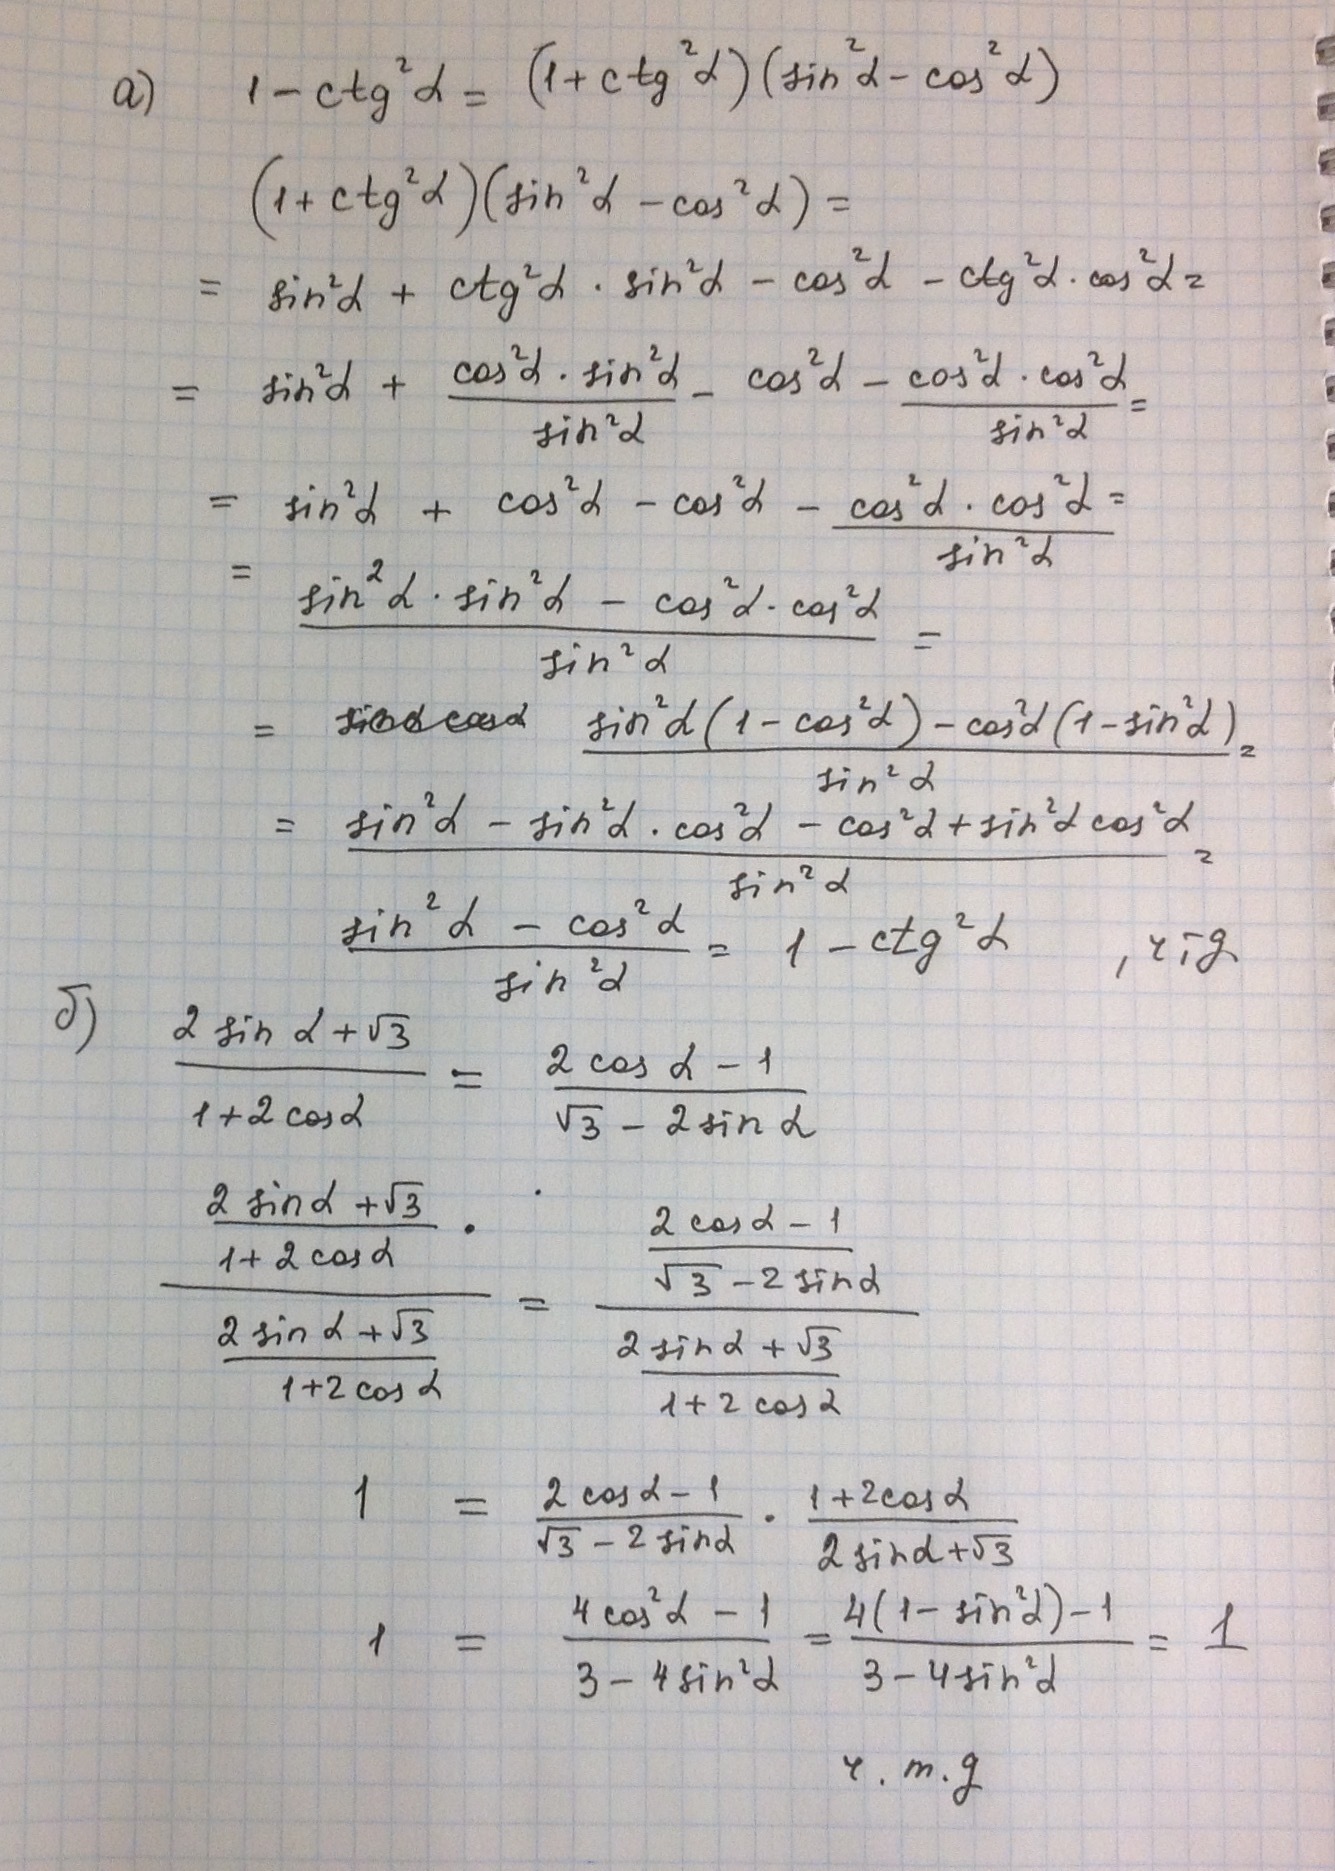 а) 1 - ctg²α = (1 + ctg²α)(sin²α - cos²α)
(1 + ctg²α)(sin²α - cos²α) =
= sin²α + ctg²α · sin²α - cos²α - ctg²α · cos²α =
= sin²α + (cos²α · sin²α)/(sin²α) - cos²α - (cos²α · cos²α)/(sin²α) =
= sin²α + cos²α - cos²α - (cos²α · cos²α)/(sin²α) =
= (sin²α · sin²α - cos²α · cos²α)/(sin²α) =
= (sin²α(1 - cos²α) - cos²α(1 - sin²α))/(sin²α) =
= (sin²α - sin²α · cos²α - cos²α + sin²α cos²α)/(sin²α) =
(sin²α - cos²α)/(sin²α) = 1 - ctg²α
б) (2 sin α + √3)/(1 + 2 cos α) = (2 cos α - 1)/(√3 - 2 sin α)
((2 sin α + √3)/(1 + 2 cos α))/((2 sin α + √3)/(1 + 2 cos α)) = ((2 cos α - 1)/(√3 - 2 sin α))/((2 sin α + √3)/(1 + 2 cos α))
1 = (2 cos α - 1)/(√3 - 2 sin α) · (1 + 2 cos α)/(2 sin α + √3)
1 = (4 cos²α - 1)/(3 - 4 sin²α) = (4(1 - sin²α) - 1)/(3 - 4 sin²α) = 1
ч. т. д